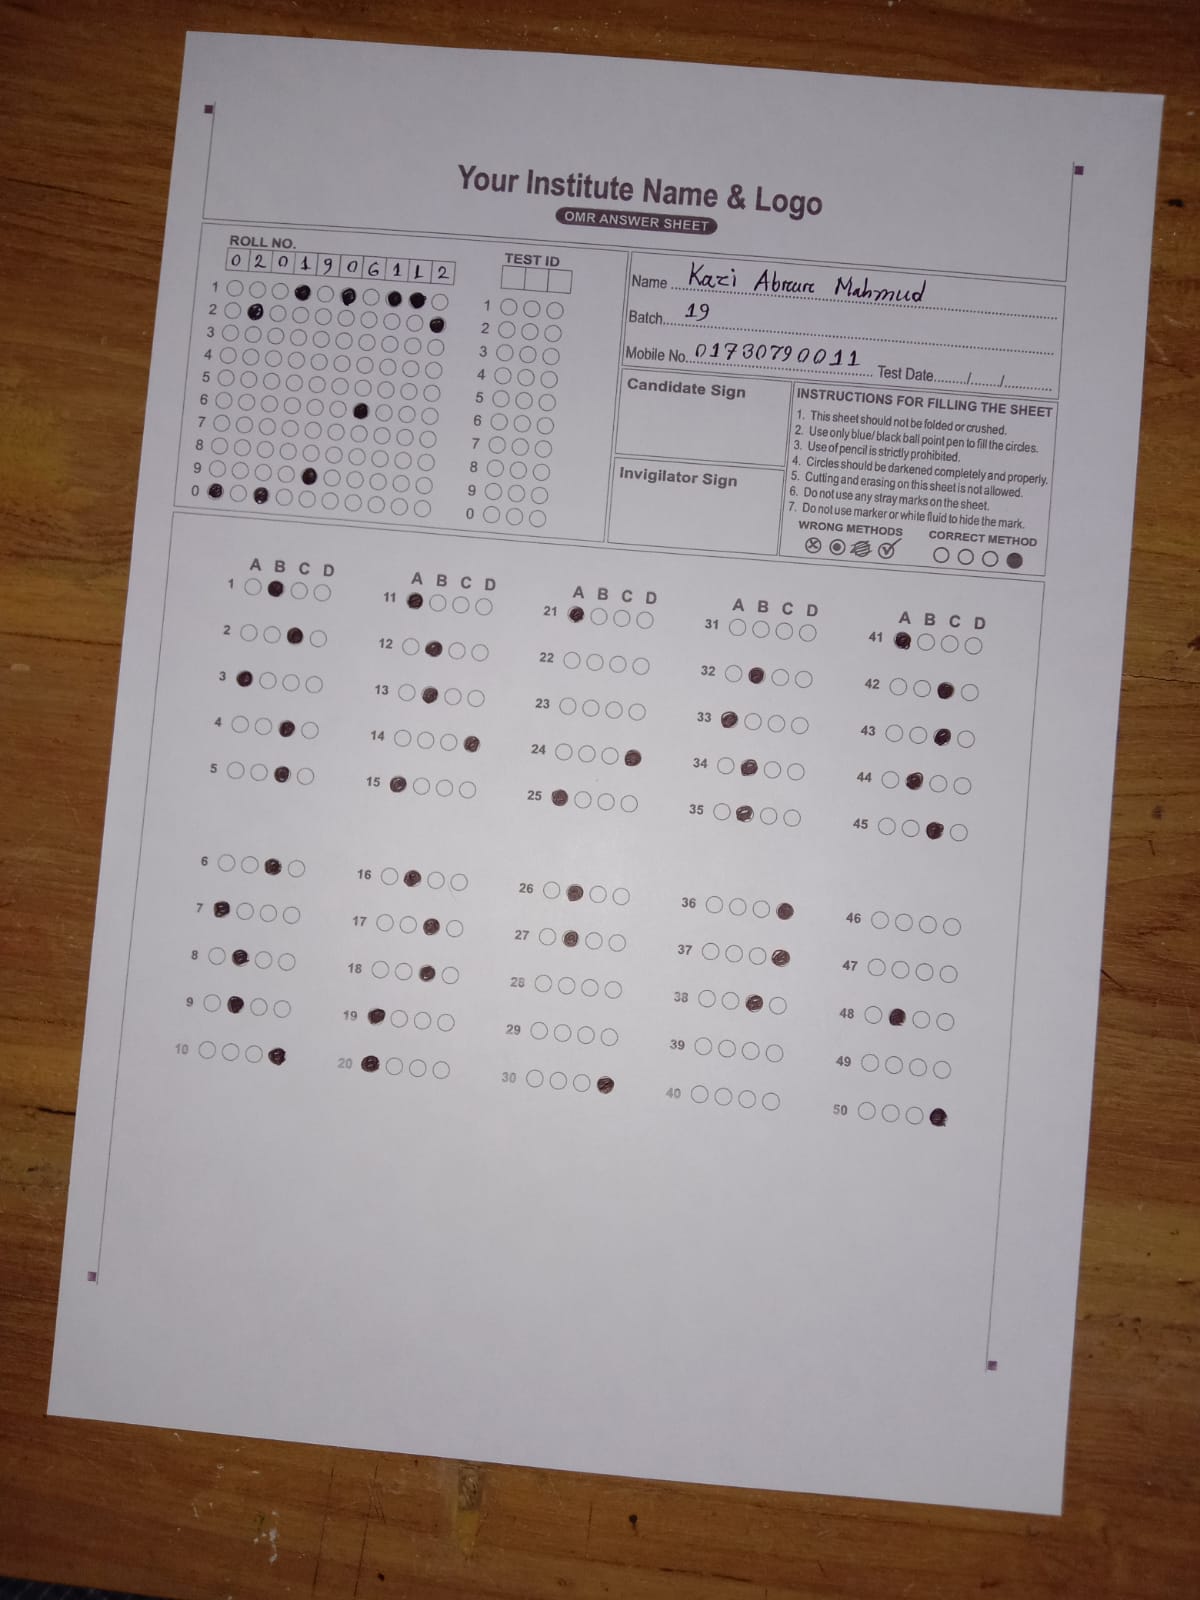 Your Institute Name & Logo
OMR ANSWER SHEET
ROLL NO.
0 2 0 1 9 0 6 1 1 2
1
2
3
4
5
6
7
8
9
0
TEST ID
1
2
3
4
5
6
7
8
9
0
Name Kazi Abrar Mahmud
Batch 19
Mobile No. 01730790011 Test Date ......../......./............
Candidate Sign
Invigilator Sign
INSTRUCTIONS FOR FILLING THE SHEET
1. This sheet should not be folded or crushed.
2. Use only blue/ black ball point pen to fill the circles.
3. Use of pencil is strictly prohibited.
4. Circles should be darkened completely and properly.
5. Cutting and erasing on this sheet is not allowed.
6. Do not use any stray marks on the sheet.
7. Do not use marker or white fluid to hide the mark.
WRONG METHODS CORRECT METHOD
A B C D
1
2
3
4
5
6
7
8
9
10
A B C D
11
12
13
14
15
16
17
18
19
20
A B C D
21
22
23
24
25
26
27
28
29
30
A B C D
31
32
33
34
35
36
37
38
39
40
A B C D
41
42
43
44
45
46
47
48
49
50